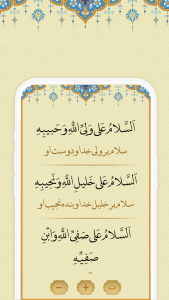 اَلسَّلامُ عَلى وَلِىِّ اللَّهِ وَحَبيبِهِ
سلام بر ولی خدا و دوست او
اَلسَّلامُ عَلى خَليلِ اللَّهِ وَنَجيبِهِ
سلام بر خلیل خدا و بنده نجیب او
اَلسَّلامُ عَلى صَفِىِّ اللَّهِ وَابْنِ
صَفِيِّهِ
− + ت